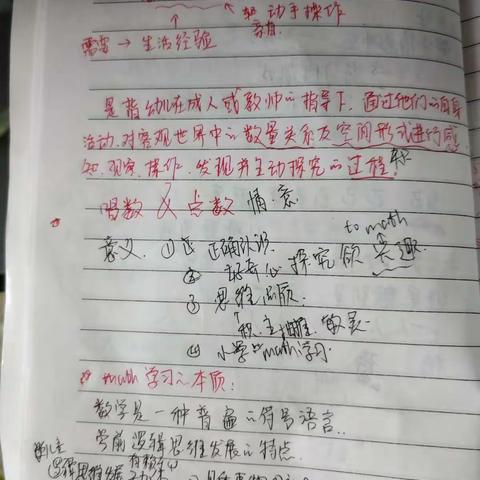 动手操作
需要 → 生活经验
是指幼儿在成人或教师的指导下，通过他们的自身
活动，对客观世界中的数量关系及空间形式进行感
知、观察、操作、发现并主动探究的过程。
唱数 & 点数
to math
意义 ① 正确认识
② 好奇心 探究欲 兴趣.
③ 思维品质.
敏灵
④ 小学 math 学习.
math 学习的本质：
数学是一种普遍的符号语言.
学前逻辑思维发展的特点.